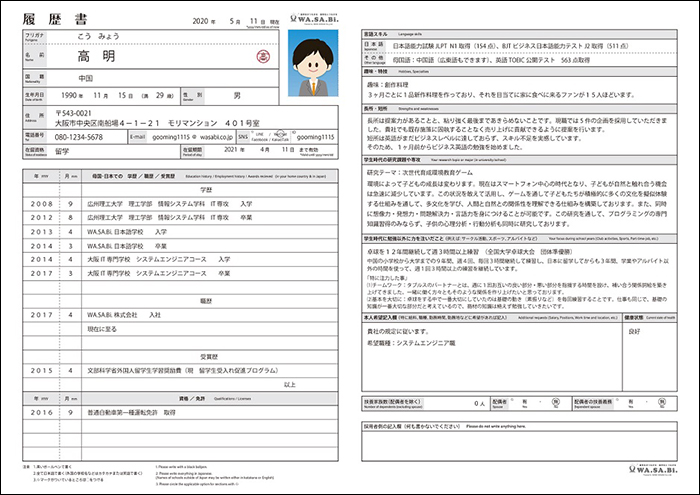 履歴書
2020 年 5 月 11 日 現在
WA.SA.Bi.
フリガナ こう みょう
名前 高 明
国籍 中国
生年月日 1990 年 11 月 15 日 （満 29 歳） 性別 男
住所 〒543-0021
大阪市中央区南船場４－１－２１ モリマンション ４０１号室
電話番号 080-1234-5678 E-mail gooming1115 @ wasabi.co.jp SNS LINE / WeChat Facebook / KakaoTalk gooming1115
在留資格 留学 在留期間 2021 年 4 月 11 日 まで有効
年 月 母国・日本での 学歴 / 職歴 / 受賞歴 Education history / Employment history / Awards received (in your home country & in japan)
学歴
2008 9 広州理工大学 理工学部 情報システム学科 IT専攻 入学
2012 8 広州理工大学 理工学部 情報システム学科 IT専攻 卒業
2013 4 WA.SA.Bi. 日本語学校 入学
2014 3 WA.SA.Bi. 日本語学校 卒業
2014 4 大阪IT専門学校 システムエンジニアコース 入学
2017 3 大阪IT専門学校 システムエンジニアコース 卒業
職歴
2017 4 WA.SA.Bi. 株式会社 入社
現在に至る
受賞歴
2015 4 文部科学省外国人留学生学習奨励費（現 留学生受入れ促進プログラム）
以上
年 月 資格 / 免許 Qualifications / Licenses
2016 9 普通自動車第一種運転免許 取得
注意 1.黒いボールペンで書く 1.Please write with a black ballpen.
2.全て日本語で書く（外国の学校名などはカタカナまたは英語で書く） 2.Please write everything in Japanese.
(Names of schools outside of Japan may be written either in katakana or English)
3.※マークがついているところは〇をつける 3.Please circle the applicable option for sections with ※
言語スキル Language skills
日本語 日本語能力試験 JLPT N1 取得（154点）、BJT ビジネス日本語能力テスト J2 取得（511点）
その他 母国語：中国語（広東語もできます）、英語 TOEIC 公開テスト 563点取得
趣味・特技 Hobbies, Specialties
趣味：創作料理
３ヶ月ごとに１品新作料理を作っており、それを目当てに家に食べに来るファンが１５人ほどいます。
長所・短所 Strengths and weaknesses
長所は提案力があることと、粘り強く最後まであきらめないことです。現職では５件の企画を採用していただきました。貴社でも既存施策に固執することなく売り上げに貢献できるように提案を行います。
短所は英語がまだビジネスレベルに達しておらず、スキル不足を実感しています。
そのため、１ヶ月前からビジネス英語の勉強を始めました。
学生時代の研究課題や専攻 Your research topic or major (in university/school)
研究テーマ：次世代育成環境教育ゲーム
環境によって子どもの成長は変わります。現在はスマートフォン中心の時代となり、子どもが自然と触れ合う機会は急速に減少しています。この状況を敢えて活用し、ゲームを通して子どもたちが積極的に多くの文化を疑似体験する仕組みを通して、多文化を学び、人間と自然との関係性を理解できる仕組みを構築しております。また、同時に想像力・発想力・問題解決力・言語力を身につけることが可能です。この研究を通して、プログラミングの専門知識習得のみならず、子供の心理分析・行動分析も同時に研究しております。
学生時代に勉強以外に力を注いだこと（例えば:サークル活動、スポーツ、アルバイトなど） Your focus during school years (Club activities, Sports, Part-time job, etc)
卓球を12年間継続して週３時間以上練習 （全国大学卓球大会 団体準優勝）
中国の小学校から大学までの９年間、週４回、毎回３時間継続して練習し、日本に留学してからも３年間、学業やアルバイト以外の時間を使って、週１回３時間以上の練習を継続しています。
「特に注力した事」
(1)チームワーク：ダブルスのパートナーとは、過に１回お互いの良い部分・悪い部分を指摘する時間を設け、補い合う関係誇絵を築き上げてきました。一緒に働く方々ともそのような関係を作り上げたいと思っております。
(2)基本を大切に：卓球をする中で一番大切にしていたのは基礎の動き（素振りなど）を毎回練習することです。仕事も同じで、基礎の知識が一番大切な部分だと考えているので、教材の知識は絶えず勉強していきたいです。
本人希望記入欄（特に給料、職種、勤務時間、勤務地などに希望があれば記入） Additional requests (Salary, Positions, Work time and location, etc) 健康状態 Current state of health
貴社の規定に従います。 良好
希望職種：システムエンジニア職
扶養家族数（配偶者を除く） Number of dependents (excluding spouse) 0 人 配偶者 Spouse 有 ・ 無 配偶者の扶養義務 Dependent spouse 有 ・ 無
採用者側の記入欄（何も書かないでください） Please do not write anything here.
WA.SA.Bi.